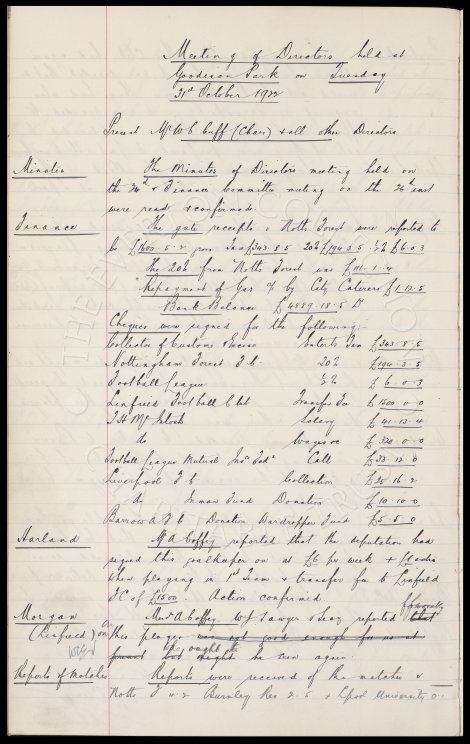 Meeting of Directors held at
Goodison Park on Tuesday
31st October 1922
Present Mr W C Cuff (Chair) & all other Directors
Minutes The Minutes of Directors meeting held on
the 24th & Finance Committee meeting on the 26th inst
were read & confirmed.
Finance The gate receipts v Notts Forest were reported to
be £1600.5.2 gross Tax £343.8.5 20% £194.3.5 ½% £6.0.3
The 20% from Notts Forest was £111.1.4
Repayment of Gas % by City Caterers £1.12.5
Bank Balance £4889.18.5 Dr
Cheques were signed for the following:-
Collector of Customs & Excise Enterts Tax £343.8.5
Nottingham Forest F C 20% £194.3.5
Football League ½% £6.0.3
Linfield Football Club Transfer Fee £1500.0.0
T H McIntosh Salary £41.13.4
do Wages &c £320.0.0
Football League Mutual Insce Fedn Call £33.12.0
Liverpool F C Collection £25.16.2
do Inman Fund Donation £10.10.0
Barrow A F C Donation Wardropper Fund £5.5.0
Harland Mr A Coffey reported that the deputation had
signed this goalkeeper on at £6 per week & £1 extra
when playing in 1st Team & transfer fee to Linfield
F C of £1500. Action confirmed.
Morgan Messrs A Coffey W J Sawyer & reported favourably that
(Linfield) on this player was not good enough for us at
present but might be & ought to be seen again.
Reports of Matches Reports were received of the matches v
Notts F 4.2 Burnley Res 2.5 & Lpool University